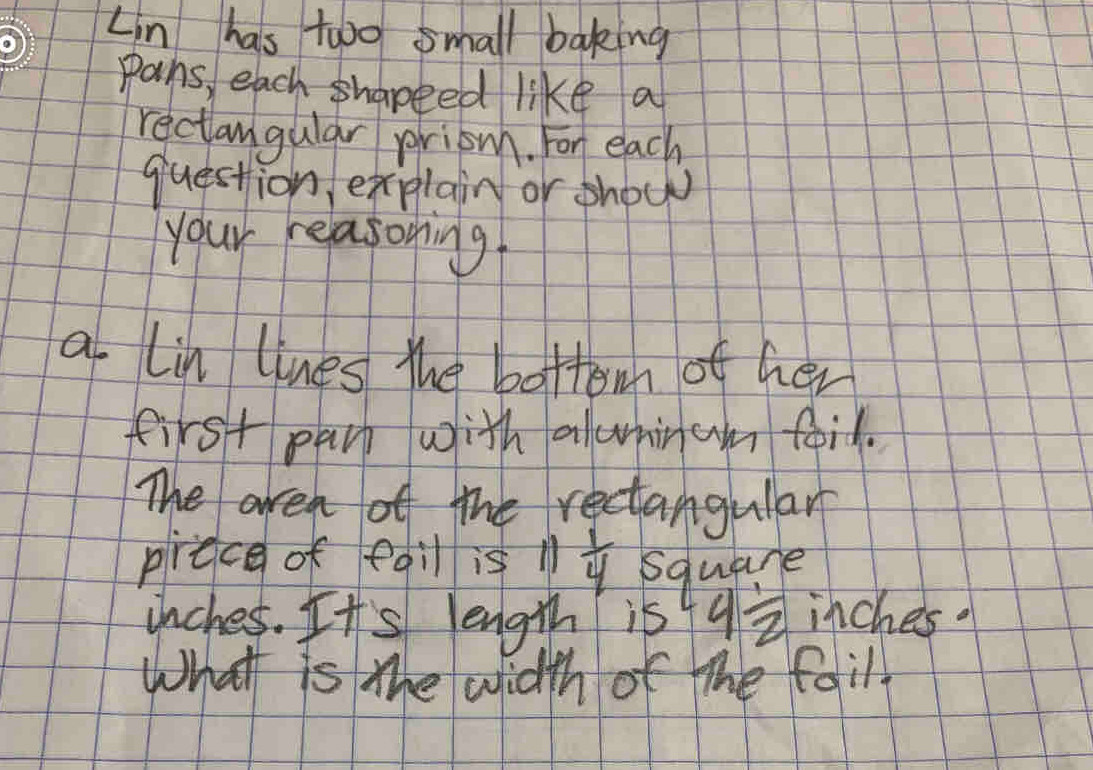 Lin has two small baking
pans, each shapeed like a
rectangular prism. For each
question, explain or show
your reasoning.
a. Lin lines the bottom of her
first pan with aluminum foil.
The area of the rectangular
piece of foil is 11 1/4 square
inches. It's length is 4 1/2 inches.
What is the width of the foil.